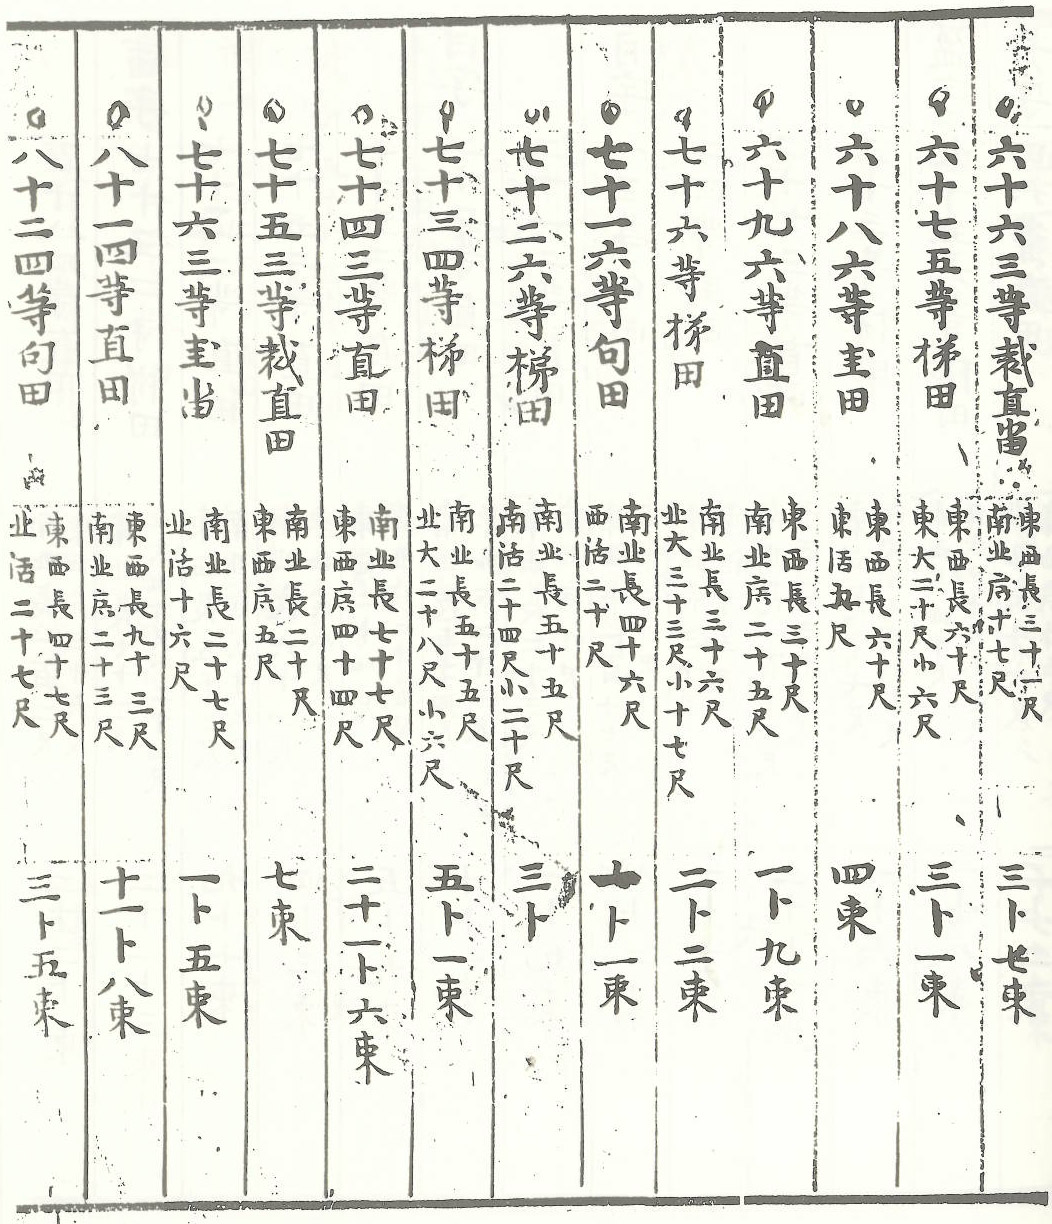 六十六三等裁直畓 東西長三十一尺 南北広十七尺 三卜七束
六十七五等梯田 東西長六十尺 東大二十尺小六尺 三卜一束
六十八六等圭田 東西長六十尺 東活五尺 四束
六十九六等直田 東西長三十尺 南北広二十五尺 一卜九束
七十六等梯田 南北長三十六尺 北大三十三尺小十七尺 二卜二束
七十一六等句田 南北長四十六尺 西活二十尺 一卜一束
七十二六等梯田 南北長五十五尺 南活二十四尺小二十尺 三卜
七十三四等梯田 南北長五十五尺 北大二十八尺小六尺 五卜一束
七十四三等直田 南北長七十七尺 東西広四十四尺 二十一卜六束
七十五三等裁直田 南北長二十尺 東西広五尺 七束
七十六三等圭畓 南北長二十七尺 北活十六尺 一卜五束
八十一四等直田 東西長九十三尺 南北広二十三尺 十一卜八束
八十二四等句田 東西長四十七尺 北活二十七尺 三卜五束